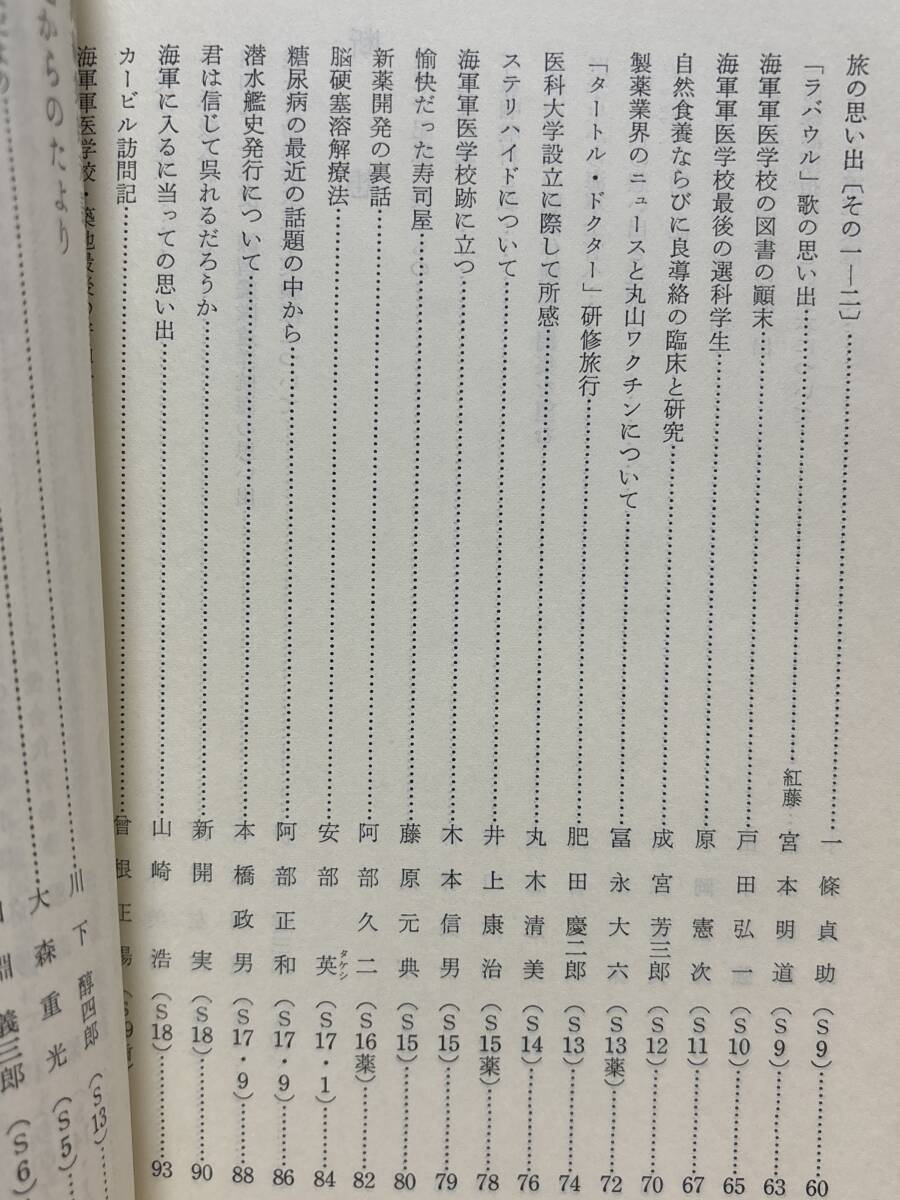 旅の思い出〔その一—二〕……一條貞助（S9）……60
「ラバウル」歌の思い出……紅藤 宮本明道（S9）……63
海軍軍医学校の図書の顚末……戸田弘一（S10）……65
海軍軍医学校最後の選科学生……原憲次（S11）……67
自然食養ならびに良導絡の臨床と研究……成宮芳三郎（S12）……70
製薬業界のニュースと丸山ワクチンについて……冨永大六（S13薬）……72
「タートル・ドクター」研修旅行……肥田慶二郎（S13）……74
医科大学設立に際して所感……丸木清美（S14）……76
ステリハイドについて……井上康治（S15薬）……78
海軍軍医学校跡に立つ……木本信男（S15）……79
愉快だった寿司屋……藤原元典（S15）……80
新薬開発の裏話……阿部久二（S16薬）……82
脳硬塞溶解療法……安部英タケシ（S17・1）……84
糖尿病の最近の話題の中から……阿部正和（S17・9）……86
潜水艦史発行について……本橋政男（S17・9）……88
君は信じて呉れるだろうか……新開実（S18）……90
海軍に入るに当っての思い出……山崎浩（S18）……93
カービル訪問記……根正（S9
海軍軍医学校・築地最後の……川下醇四郎（S13）
からのたより……大森重光（S5）
淵義三郎（S6）